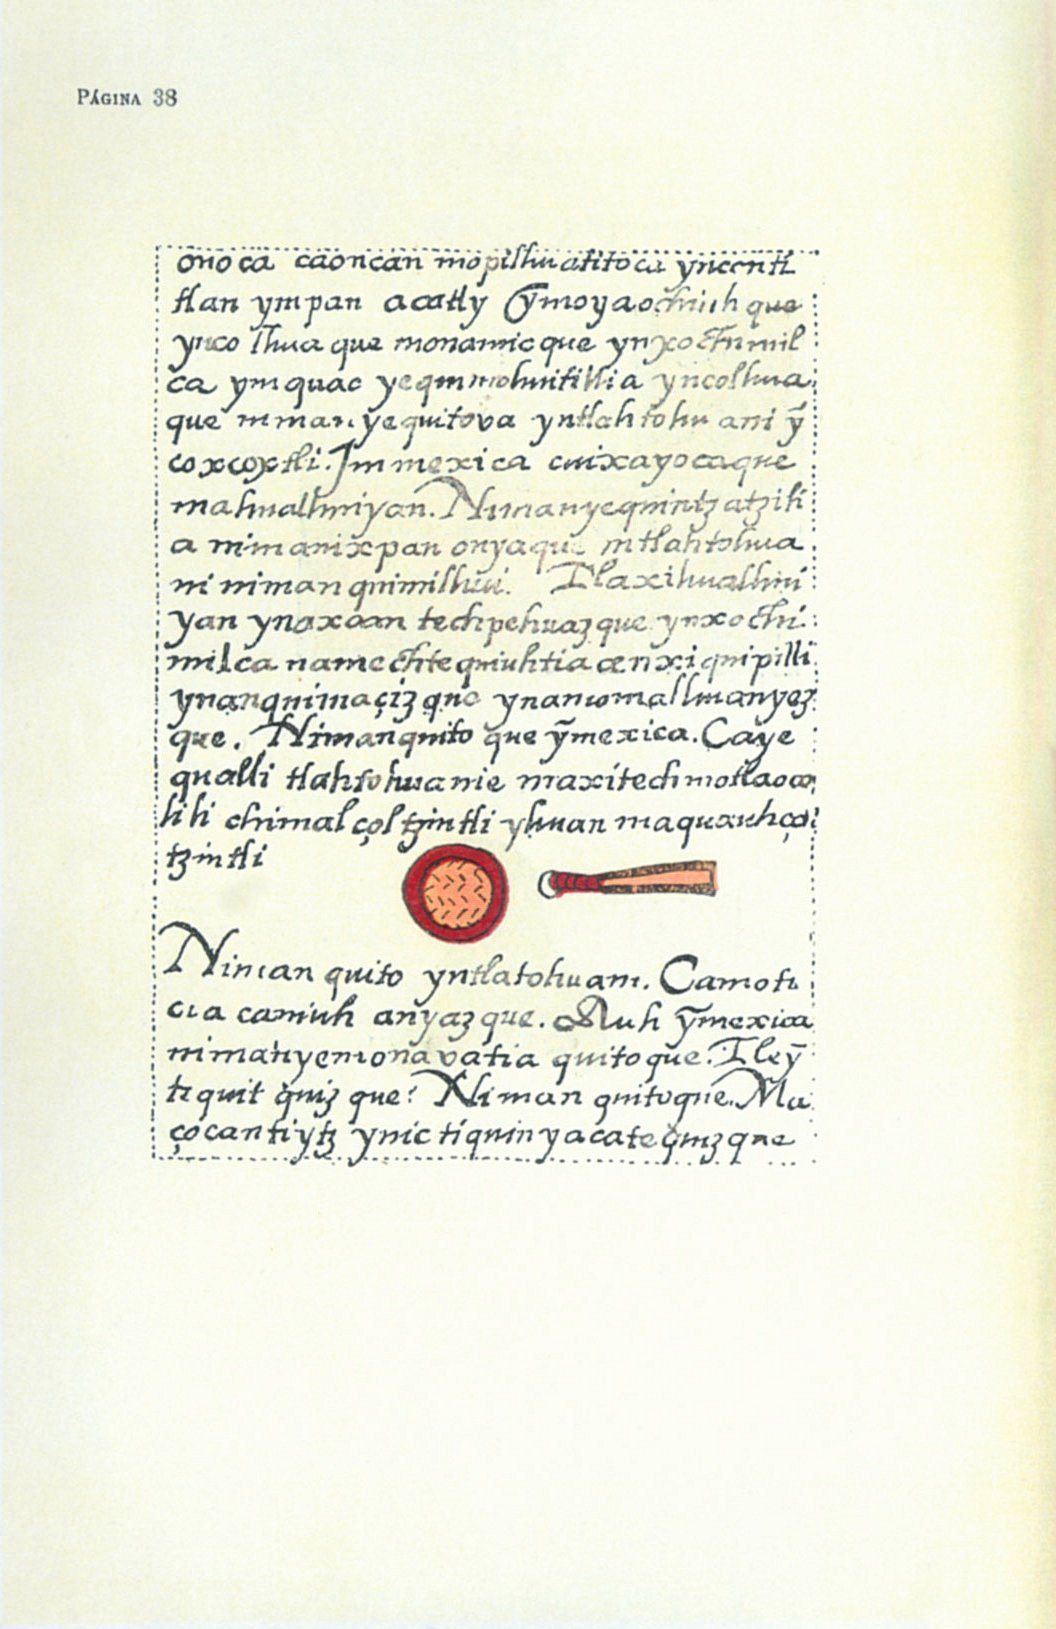 PÁGINA 38
onoca caoncan mopilhuatitoca yncenti
tlan ympan acatly ỹmoyaochiuhque
ynco lhuaque monamicque ynxochimil
ca ymquac yeqmmohuitillia yncolhua
que niman yequitova yntlahtohuani ỹ
coxcoxtli. Jnmexica cuixayocaque
mahualhuiyan. Nimanyequintzatzili
a nimanixpan onyaque intlahtohua
ni niman quimilhui. Tlaxihualhui
yan ynaxcan techpehuazque ynxochi
milca namechtequiuhtia cenxiquipilli
ynanquimaçizque ynanmomalhuanyez
que. Nimanquitoque ỹmexica. Caye
qualli tlahtohuanie maxitechmotlaoco
lili chimalçoltzintli yhuan maquauhço
tzintli
Niman quito yntlatohuani. Camoti
cia camiuh anyazque. Auh ỹmexica
nimanyemonavatia quitoque. Tleỹ
tiquit quizque? Niman quitoque. Ma
çocantiytz ynictiquinyacatequizque